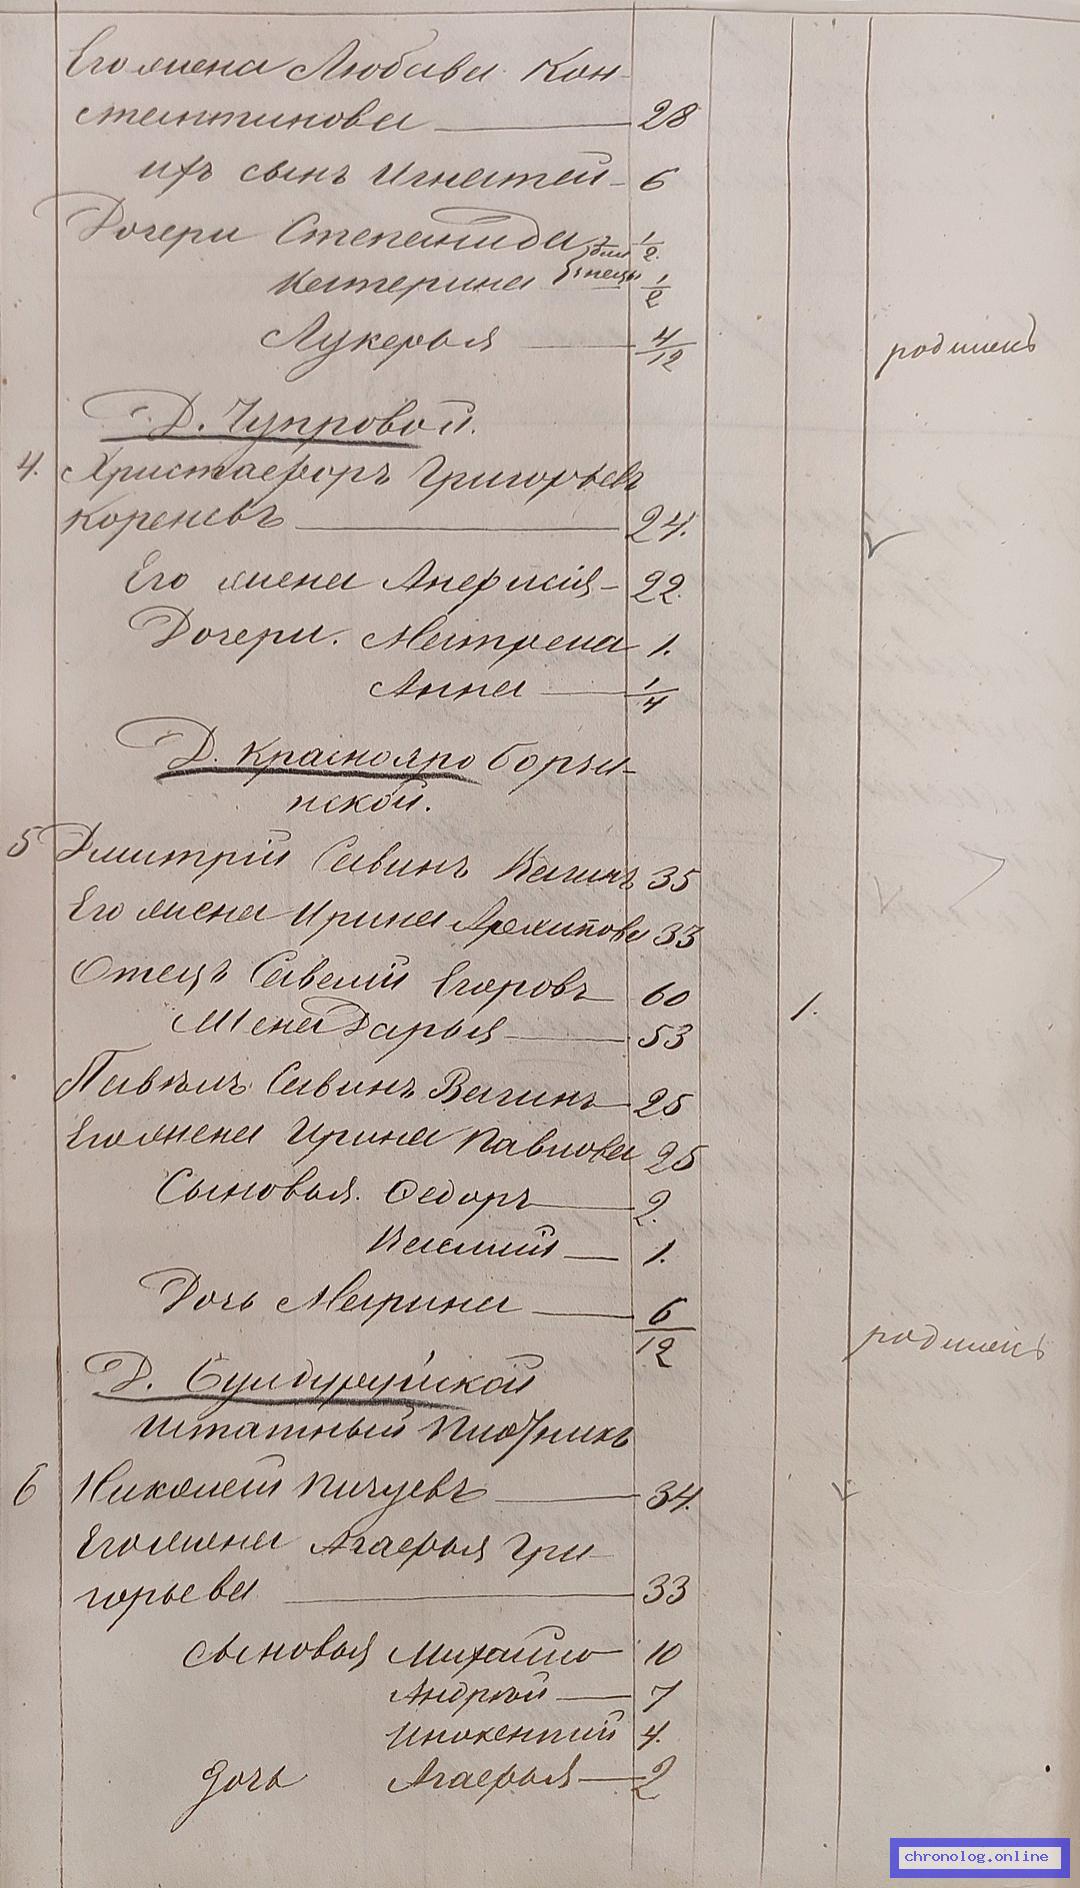 Его жена Любава Кон-
стантинова 28
ихъ сынъ Игнатей 6
Дочери Степанида 1/2
близнецы
Катерина 1/2
Лукерья 4/12
родимецъ
Д. Чупровой.
4. Христафоръ Григорьевъ
Кореневъ 24.
Его жена Анфисія 22
Дочери. Матрена 1.
Анна 1/4
Д. Краснояро Борзи-
нской.
5 Дмитрій Савинъ Вагинъ 35
Его жена Ирина Архипова 33
Отецъ Савелій Егоровъ 60 1.
Жена Дарья 53
Павелъ Савинъ Вагинъ 25
Его жена Ирина Павлова 25
Сыновья. Федоръ 2.
Василій 1.
Дочь Марина 6/12
родимецъ
Д. Булдуруйской
Штатный Плотникъ
6 Николай Пичуевъ 34.
Его жена Агафья Гри-
горьева 33
сыновья Михайло 10
Андрей 7
Инокентий 4.
дочь Агафья 2
chronolog.online